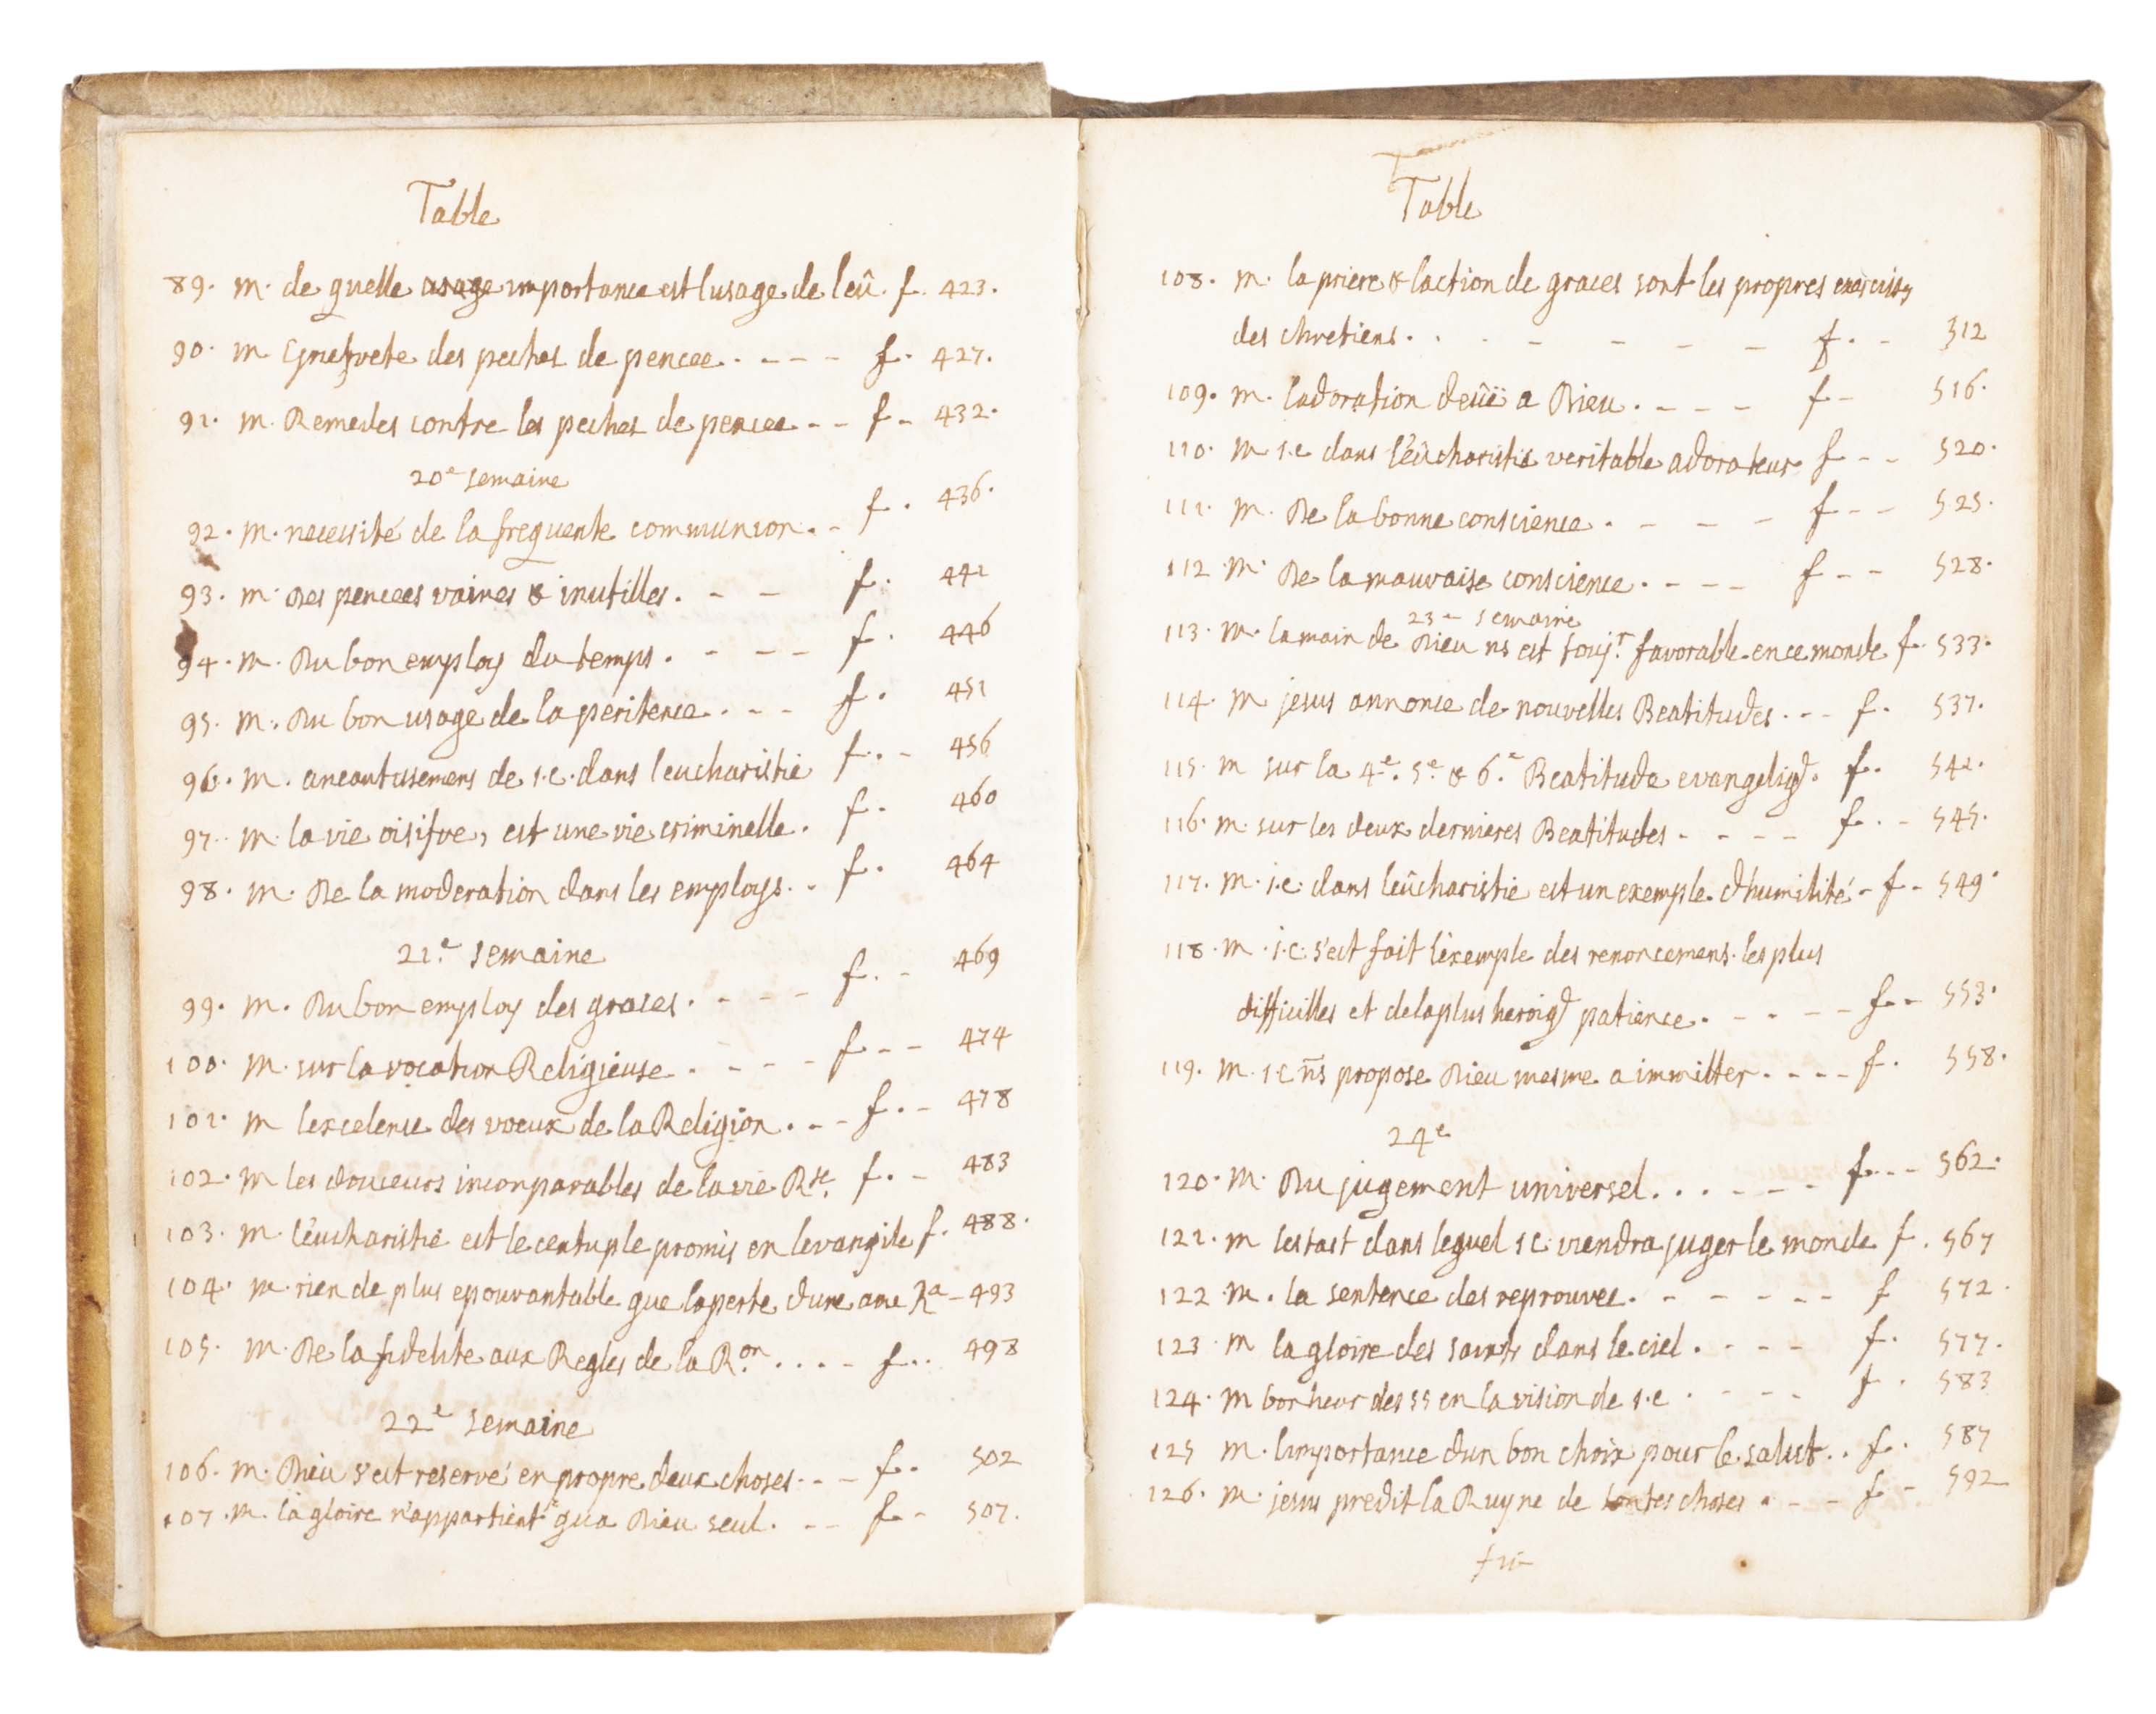 Table
89. m. de quelle usage importance est lusage de leû. f. 423.
90. m. Griefvete des pechez de pencee. - - - - f. 427.
91. m. Remedes contre les pechez de pencee - - f - 432.
20e semaine
92. m. necessité de la frequente communion. - f. 436.
93. m. Des pencees vaines & inutilles. - - f. 441
94. m. Du bon employ du temps. - - - f. 446
95. m. Du bon usage de la penitence. - - f. 451
96. m. aneantissemens de i.c. dans leucharistie f. - 456
97. m. la vie oisifve, est une vie criminelle. f. 460
98. m. De la moderation dans les employs. . f. 464
21e semaine
99. m. Du bon employ des graces. - - - f. - 469
100. m. sur la vocation Religieuse. - - - f - - 474
101. m lexcelence des voeux de la Religion. . - f. - 478
102. m les douceurs inconparables de la vie Rse. f. - 483
103. m. l'eucharistie est le centuple promis en levangile f. 488.
104. m. rien de plus epouvantable que laperte dune ame Ra - 493
105. m. De la fidelite aux Regles de la Ron. . . . - f. . 498
22e semaine
106. m. Dieu s'est reservé en propre deux choses. - - f. 502
107. m. la gloire n'appartient qua Dieu seul. - - f - 507.
Table
108. m. la priere & laction de graces sont les propres exercisses
des chretiens. . - - - - - f. - 512
109. m. ladoration deüe a Dieu. - - - f - 516.
110. m i.c dans l'eûcharistie veritable adorateur f - - 520.
111. m. De la bonne conscience. - - - f - - 525.
112 m. De la mauvaise conscience. - - - f - - 528.
23e semaine
113. m. la main de Dieu ns est toujr. favorable en ce monde f. 533.
114. m jesus annonce de nouvelles Beatitudes. - - f. 537.
115. m sur la 4e. 5e. & 6.e Beatitude evangeliq. f. 541.
116. m. sur les deux dernieres Beatitudes - - - - f. - 545.
117. m. i.c. dans leûcharistie est un exemple dhumilité - f - 549.
118. m. i.c. s'est fait l'exemple des renoncemens les plus
difficilles et de la plus heroiq patience. - - - - f - 553.
119. m. i c ns propose Dieu mesme a immitter. - - - f. 558.
24e
120. m. Du jugement universel. . . . - - - f. - - 562.
121. m lestast dans lequel i c. viendra juger le monde f. 567
122 m. la sentence des reprouvez. - - - - - f 572.
123 m la gloire des saints dans le ciel. - - - f. 577.
124. m bonheur des ss en la vision de i.c. - - - f. 583
125 m. l'importance dun bon choix pour le salut. . f. 587
126. m. jesus predit la Ruyne de toutes choses. - - f - 592
fin